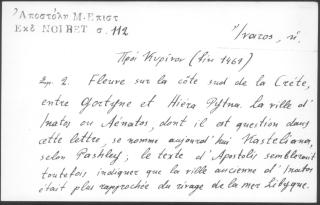 Ἀποστόλη Μ. Επιστ
Εκδ NOIRET σ. 112
Ἴνατος, ὁ.
Πρὸς Κυρίνον (fin 1461)
Σημ. 2. Fleuve sur la côte sud de la Crète,
entre Gortyne et Hiera Pytna. La ville d'
Inatos ou Aenatos, dont il est question dans
cette lettre, se nomme aujourd'hui Kasteliana,
selon Pashley; le texte d'Apostolis semblerait
toutefois indiquer que la ville ancienne d'Inatos
était plus rapprochée du rivage de la mer Libyque.